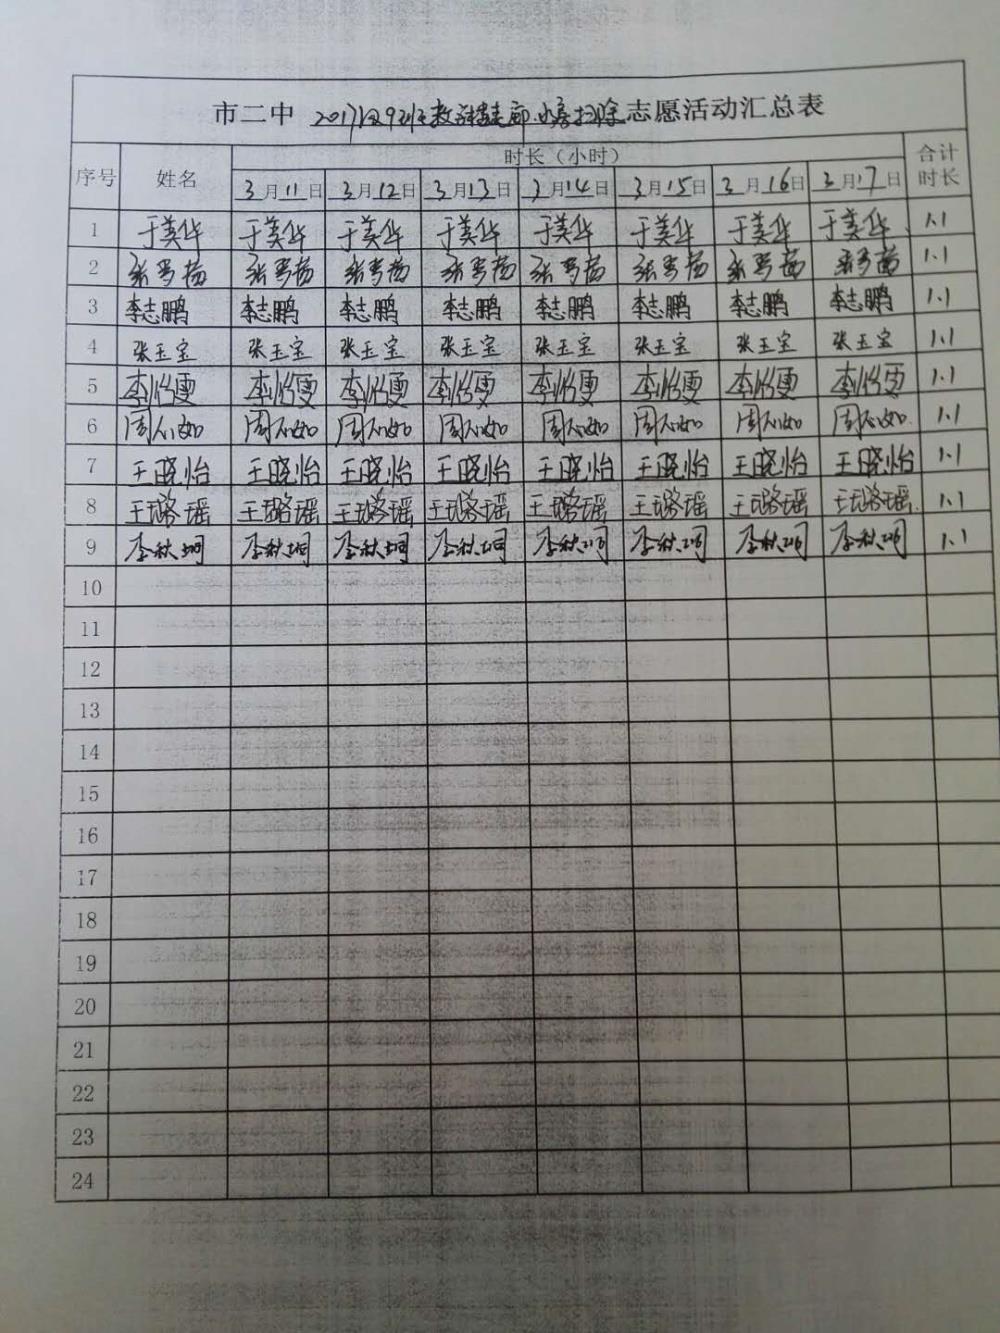 市二中 2017级9班教学楼走廊、小房扫除志愿活动汇总表
序号 姓名 时长（小时） 合计时长
3月11日 3月12日 3月13日 3月14日 3月15日 3月16日 3月17日
1 于美华 于美华 于美华 于美华 于美华 于美华 于美华 于美华 1.1
2 1.1
3 李志鹏 李志鹏 李志鹏 李志鹏 李志鹏 李志鹏 李志鹏 李志鹏 1.1
4 张玉宝 张玉宝 张玉宝 张玉宝 张玉宝 张玉宝 张玉宝 张玉宝 1.1
5 李怡雯 李怡雯 李怡雯 李怡雯 李怡雯 李怡雯 李怡雯 李怡雯 1.1
6 周心如 周心如 周心如 周心如 周心如 周心如 周心如 周心如 1.1
7 王晓怡 王晓怡 王晓怡 王晓怡 王晓怡 王晓怡 王晓怡 王晓怡 1.1
8 王璐瑶 王璐瑶 王璐瑶 王璐瑶 王璐瑶 王璐瑶 王璐瑶 王璐瑶 1.1
9 李秋 李秋 李秋 李秋 李秋 李秋 李秋 李秋 1.1
10
11
12
13
14
15
16
17
18
19
20
21
22
23
24